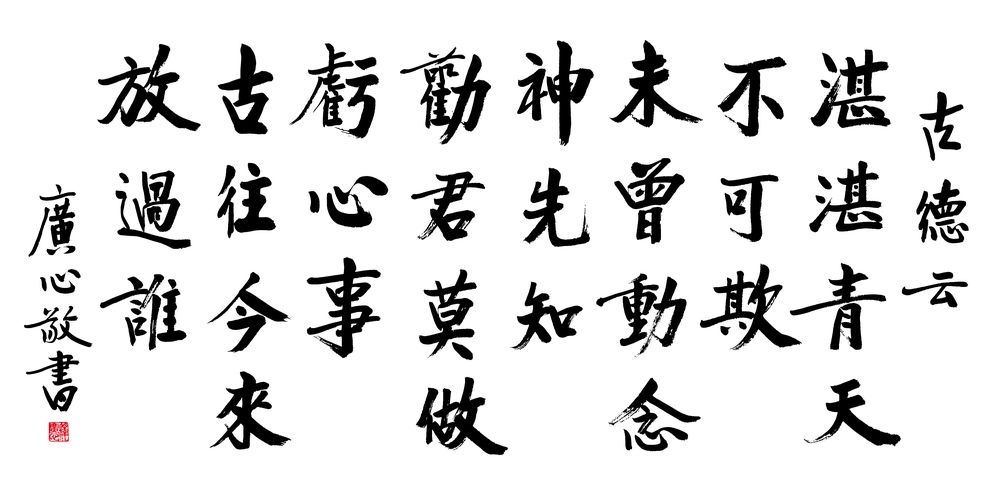 古德云
湛湛青天
不可欺
未曾動念
神先知
勸君莫做
虧心事
古往今來
放過誰
廣心敬書